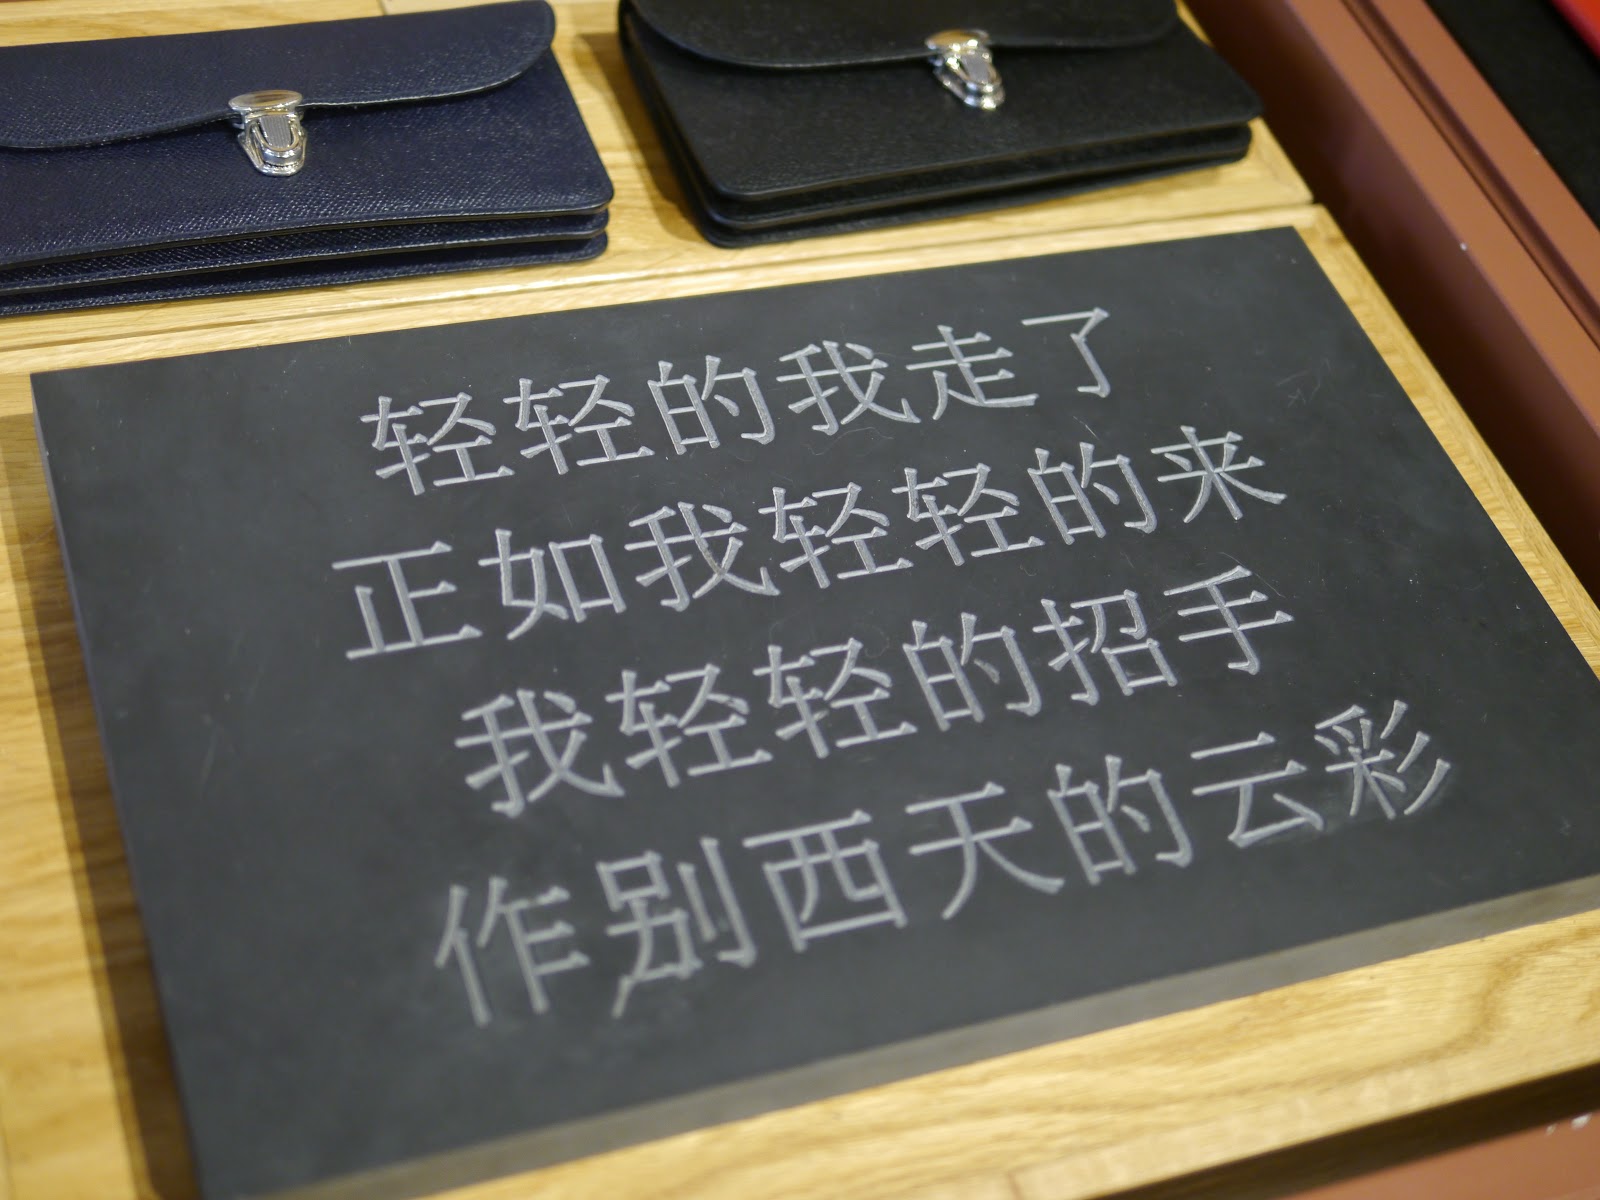 轻轻的我走了
正如我轻轻的来
我轻轻的招手
作别西天的云彩